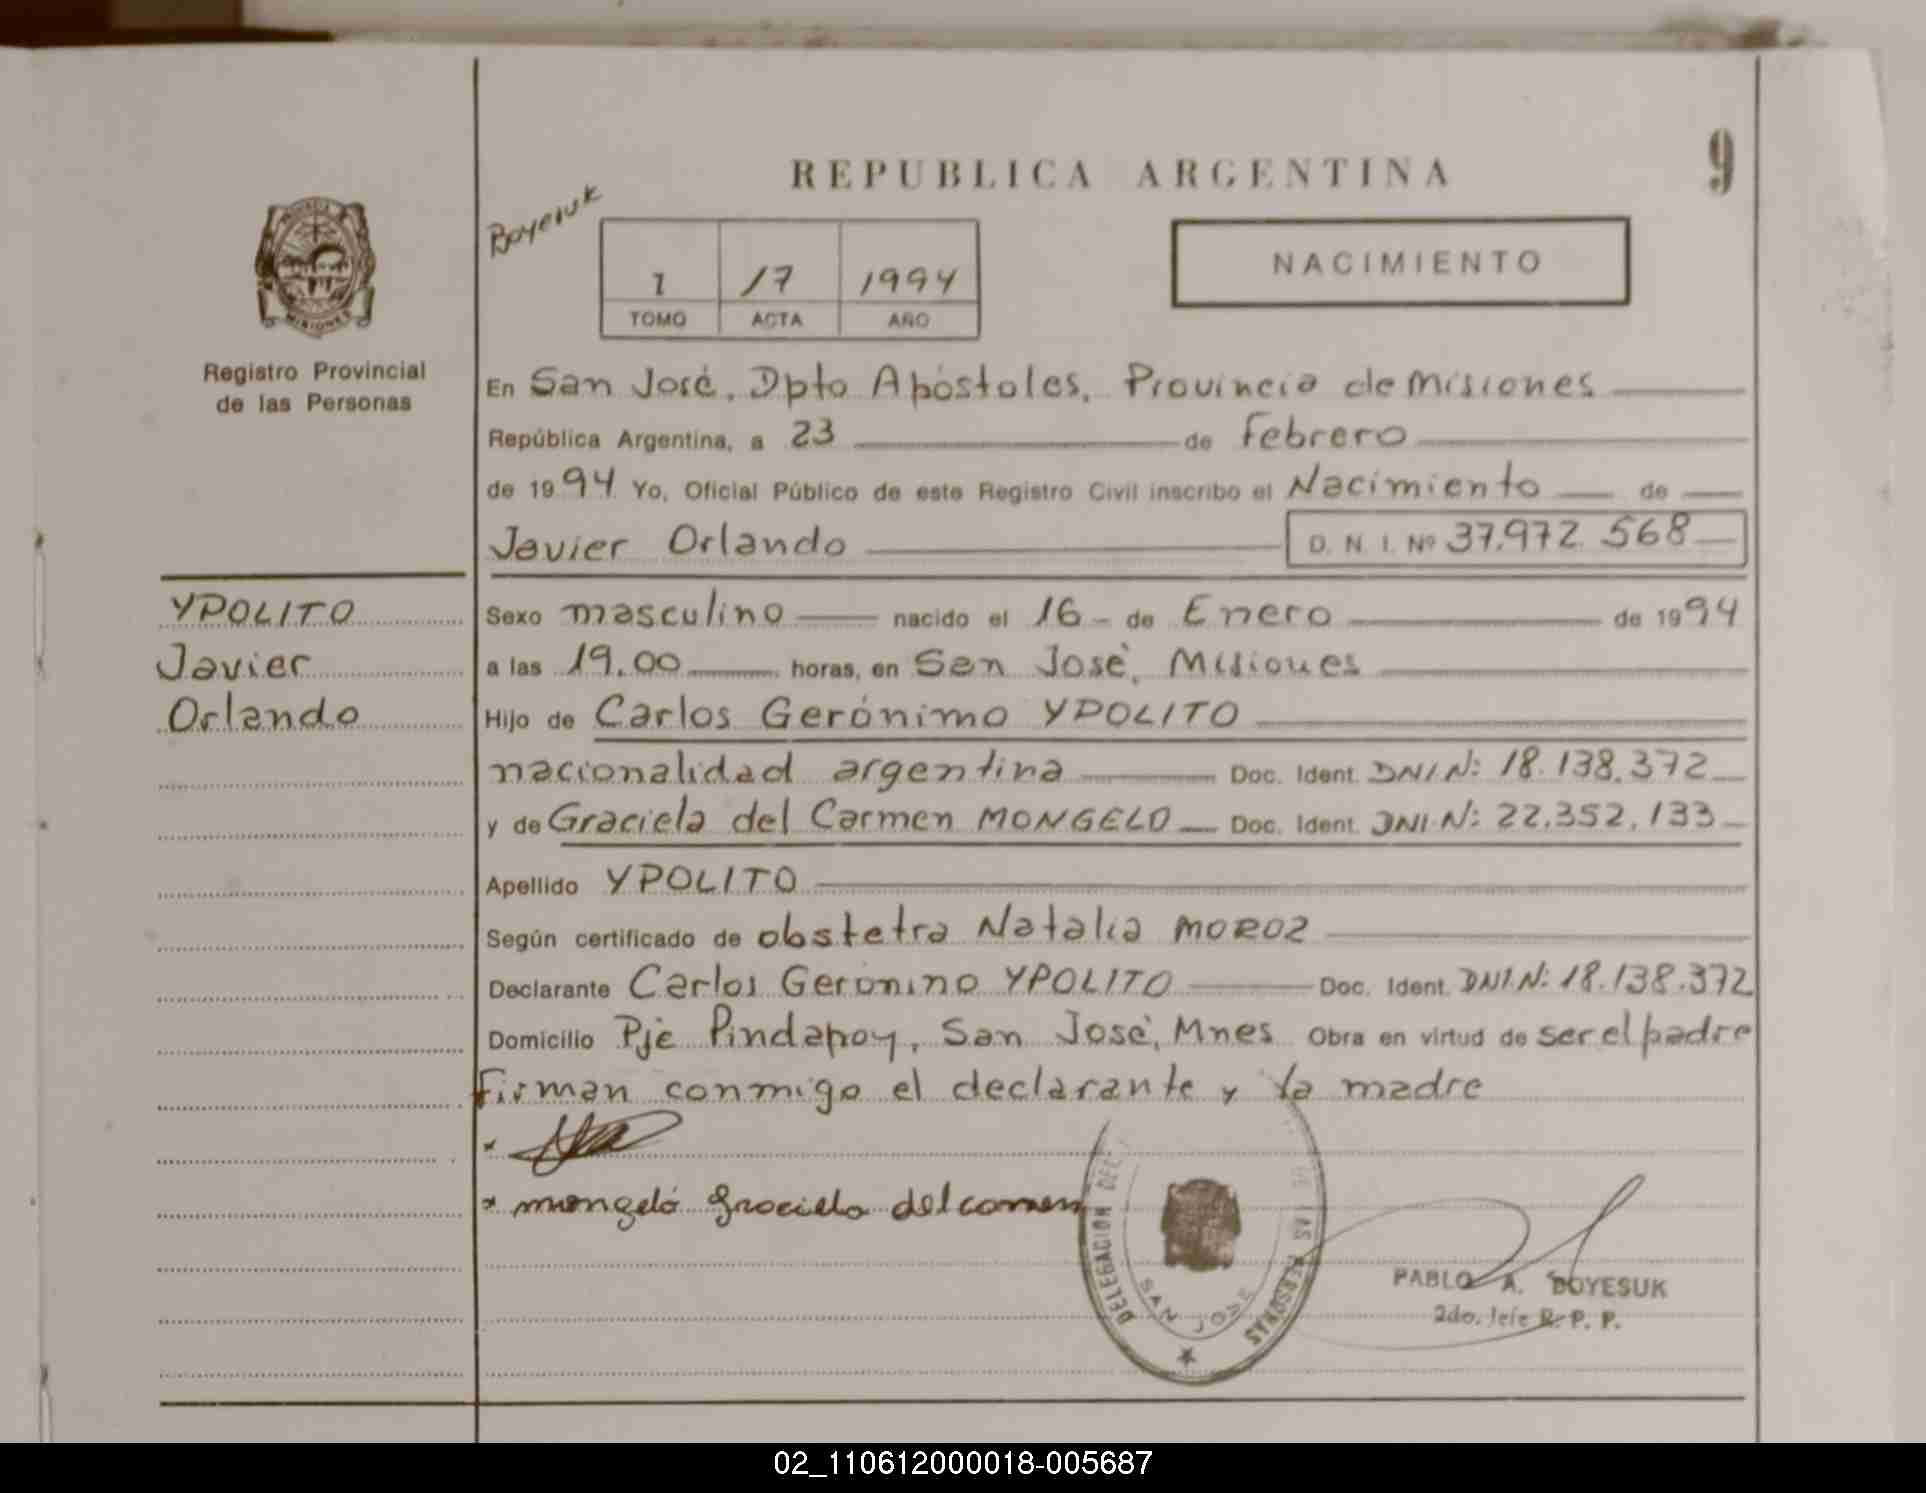 9
REPUBLICA ARGENTINA
Boyesuk
NACIMIENTO
1 17 1994
TOMO ACTA AÑO
PROVINCIA
MISIONES
Registro Provincial
de las Personas
En San José, Dpto Apóstoles, Provincia de Misiones
República Argentina, a 23 de Febrero
de 1994 Yo, Oficial Público de este Registro Civil inscribo el Nacimiento de
Javier Orlando D. N. I. Nº 37.972.568
YPOLITO
Javier
Orlando
Sexo masculino nacido el 16 - de Enero de 1994
a las 19.00 horas, en San José, Misiones
Hijo de Carlos Gerónimo YPOLITO
nacionalidad argentina Doc. Ident. DNI N: 18.138.372
y de Graciela del Carmen MONGELO Doc. Ident. DNI N: 22.352.133
Apellido YPOLITO
Según certificado de obstetra Natalia MOROZ
Declarante Carlos Geronino YPOLITO Doc. Ident. DNI.N: 18.138.372
Domicilio Pje Pindapoy, San José, Mnes Obra en virtud de ser el padre
Firman conmigo el declarante y la madre
* mongeló graciela del carmen
DELEGACION DEL DE LAS PERSONAS
SAN JOSE
PABLO A. BOYESUK
2do. Jefe R. P. P.
02_110612000018-005687